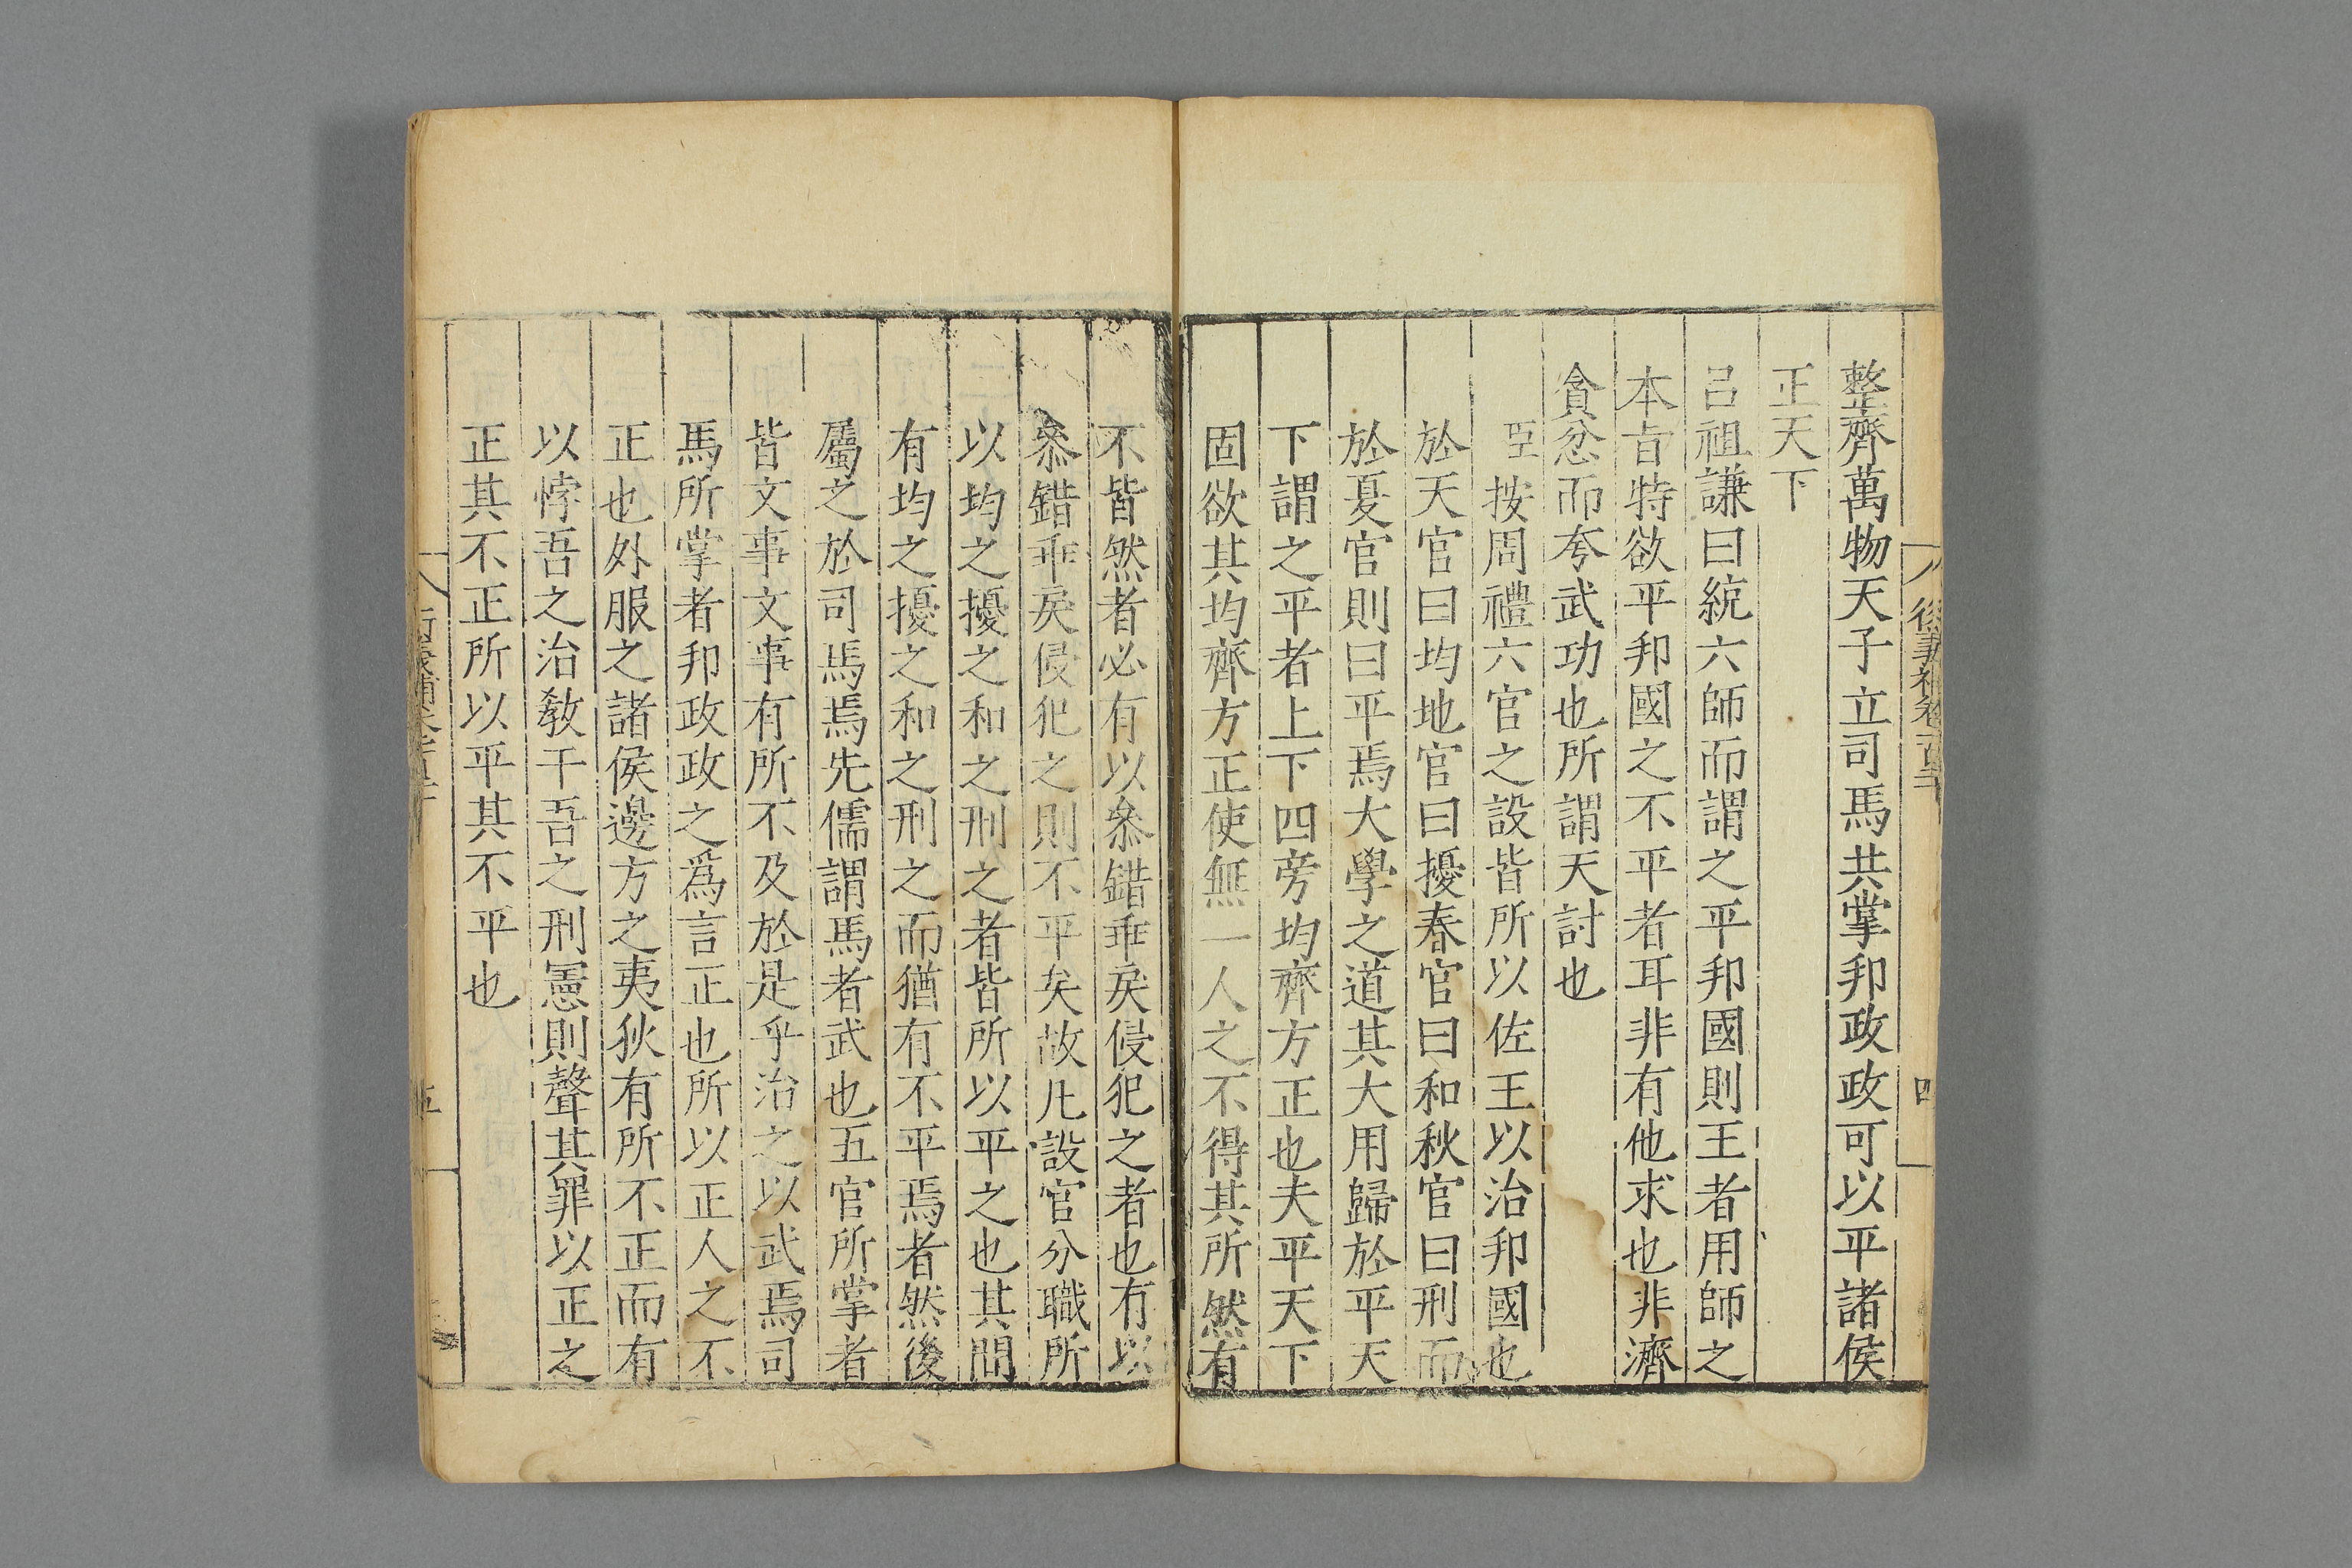 整齊萬物天子立司馬共掌邦政政可以平諸侯
正天下
呂祖謙曰統六師而謂之平邦國則王者用師之
本旨特欲平邦國之不平者耳非有他求也非濟
貪忿而夸武功也所謂天討也
臣按周禮六官之設皆所以佐王以治邦國也
於天官曰均地官曰擾春官曰和秋官曰刑而
於夏官則曰平焉大學之道其大用歸於平天
下謂之平者上下四旁均齊方正也夫平天下
固欲其均齊方正使無一人之不得其所然有
不皆然者必有以叅錯乖戾侵犯之者也有以
叅錯乖戾侵犯之則不平矣故凡設官分職所
以均之擾之和之刑之者皆所以平之也其間
有均之擾之和之刑之而猶有不平焉者然後
屬之於司馬焉先儒謂馬者武也五官所掌者
皆文事文事有所不及於是乎治之以武焉司
馬所掌者邦政政之爲言正也所以正人之不
正也外服之諸侯邊方之夷狄有所不正而有
以悖吾之治敎干吾之刑憲則聲其罪以正之
正其不正所以平其不平也
五